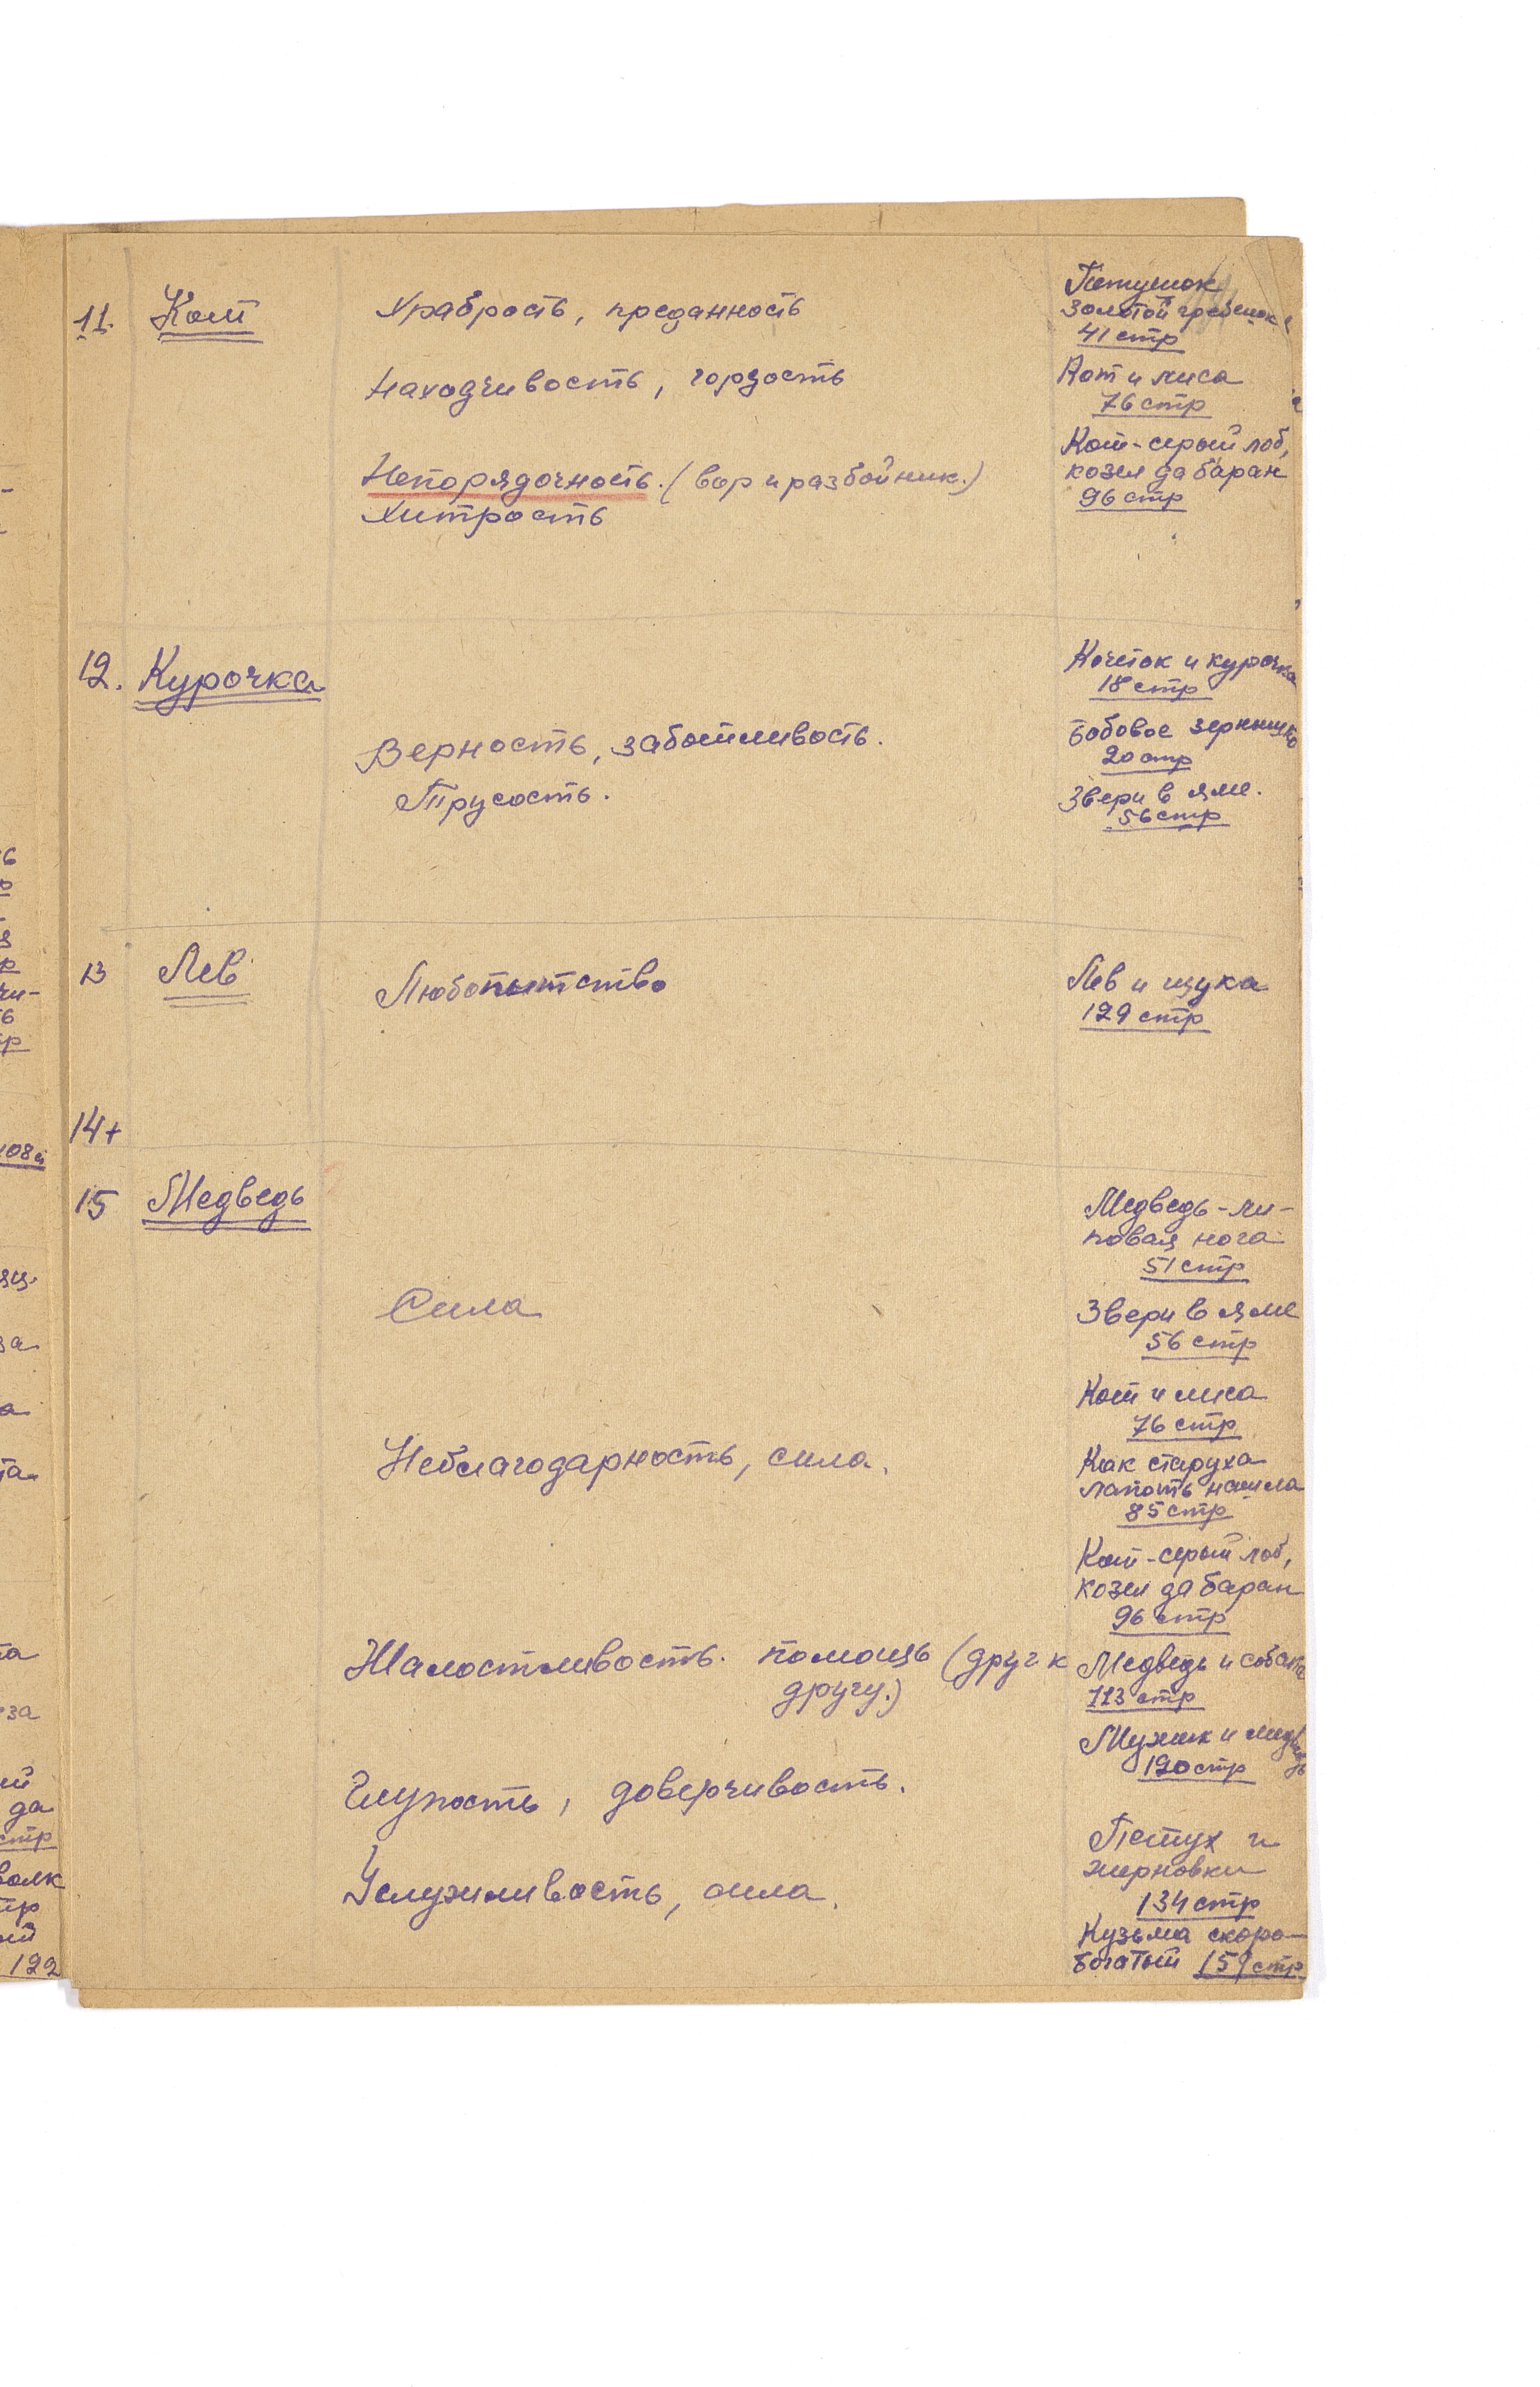 11. Кот Храбрость, преданность Петушок
золотой гребешок
41 стр
Находчивость, гордость Кот и лиса
76 стр
Кот-серый лоб,
Непорядочность. (вор и разбойник.) козел да баран
Хитрость 96 стр
12. Курочка Кочеток и курочка
18 стр
Верность, заботливость. Бобовое зернышко
20 стр
Трусость. Звери в яме.
56 стр
13 Лев Любопытство Лев и щука
129 стр
14+
15 Медведь Медведь-ли-
повая нога
51 стр
Сила Звери в яме
56 стр
Кот и лиса
76 стр
Неблагодарность, сила. Как старуха
лапоть нашла
85 стр
Кот-серый лоб,
козел да баран
96 стр
Жалостливость. помощь (друг к Медведь и собака
другу.) 113 стр
Мужик и медведь
120 стр
Глупость, доверчивость.
Петух и
жерновки
Услужливость, сила. 134 стр
Кузьма скоро-
богатый 159 стр